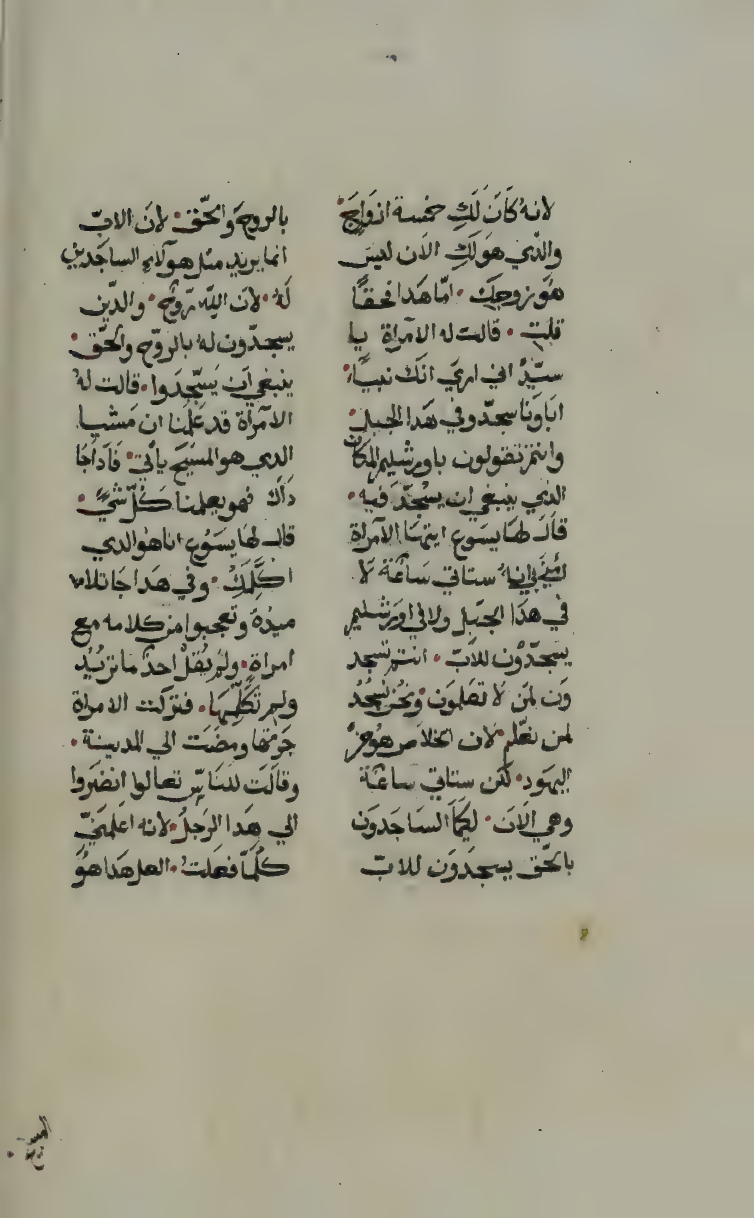 لانهُ كَانَ لَكِ خمسة ازوَاجَ
والذَّي هوَ لَكِ الاَن ليسَ
هوَ زوجكِ • امَّا هَدا فحقًا
قلتِ • قالت له الامرَاة يا
سيّدُ اني اريَ انكَ نبيًا •
ابَاونَا سجدّوا في هَدا الجبل •
وانتمْ تقولون باورشليم المكان
الذي ينبغي ان يسْجدَّ فيه •
قالَ لهَا يسَوع ايتهَا الامرَاة
انهُ ستاتي سَاعَة لَا
في هَذا الجبَل ولا في اورَشليم
يسجدّوُن للابّ • انتم تسجد
ون لمَن لَا تعَلمَون ونحُن نسجُدُ
لمن نعَّلم • لان الخلاصَ هُوَ منَ
اليهَود • لكن ستاتي ساعَة
وهي الاَن • لكيَما السَاجَدوَن
بالحّق يسجدَوَن للابّ
بالروح وَالحّق • لانَ الابّ
انما يريد مثل هوَلاءِ الساجَدينِ
لهُ • لانَ اللهَ رّوحٌ • والدَّين
يسجدّون لهُ بالروّح والحّق •
ينبغي اَن يَسّجدَوا • قالت لهُ
الامرَاة قد عَلمْنا ان مَشيا
الدي هو المسَيَح ياتي • فَادَا جَا
دَاك فهو يعلمنا كُلّ شيًّ •
قالَ لهَا يسَوُع انا هوَ الدي
اكَلّمَكِ • وفي هَدا جَا تلاما
ميدهَ وتعجبوا من كلامه معَ
امراةٍ • ولم يُقلْ احدٌ ما تريُد
ولم تكَلّمهَا • فتركت الامراة
جَرتها ومضَت الي المدينة •
وقالَت للنَاسّ تعالوا انضروا
الي هَدا الرَجلُ • لانه اعلَمنيّ
كلمّا فعَلت • العل هَدا هوَ
المسيح